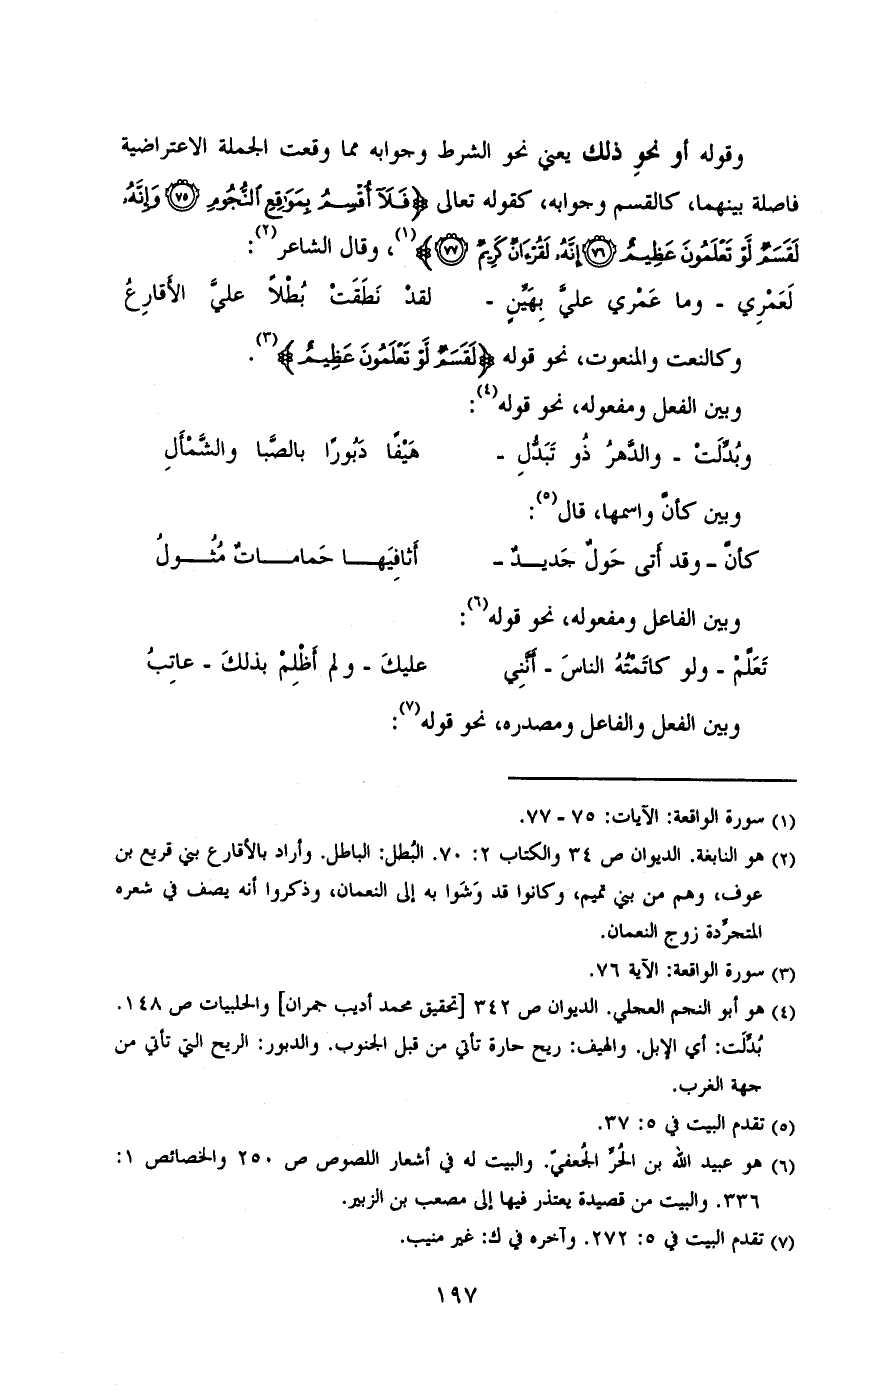 وقوله أو نحوِ ذلك يعني نحو الشرط وجوابه مما وقعت الجملة الاعتراضية
فاصلة بينهما، كالقسم وجوابه، كقوله تعالى ﴿فَلَآ أُقْسِمُ بِمَوَٰقِعِ ٱلنُّجُومِ ۝٧٥ وَإِنَّهُۥ
لَقَسَمٌ لَّوْ تَعْلَمُونَ عَظِيمٌ ۝٧٦ إِنَّهُۥ لَقُرْءَانٌ كَرِيمٌ ۝٧٧﴾(١)، وقال الشاعر(٢):
لَعَمْرِي - وما عَمْرِي عليَّ بِهَيِّنٍ - لقدْ نَطَقَتْ بُطْلاً عليَّ الأَقارِعُ
وكالنعت والمنعوت، نحو قوله ﴿لَقَسَمٌ لَّوْ تَعْلَمُونَ عَظِيمٌ﴾(٣).
وبين الفعل ومفعوله، نحو قوله(٤):
وبُدِّلَتْ - والدَّهرُ ذُو تَبَدُّلِ - هَيْفًا دَبُورًا بالصَّبا والشَّمْأَلِ
وبين كأنَّ واسمها، قال(٥):
كأنَّ - وقد أَتى حَولٌ جَديـــدٌ - أَثافِيَهـــا حَمامـــاتٌ مُثُـــولُ
وبين الفاعل ومفعوله، نحو قوله(٦):
تَعَلَّمْ - ولو كاتَمْتُهُ الناسَ - أَنَّنِي عليكَ - ولم أَظْلِمْ بذلكَ - عاتِبُ
وبين الفعل والفاعل ومصدره، نحو قوله(٧):
(١) سورة الواقعة: الآيات: ٧٥ - ٧٧.
(٢) هو النابغة. الديوان ص ٣٤ والكتاب ٢: ٧٠. البُطل: الباطل. وأراد بالأقارع بني قريع بن
عوف، وهم من بني تميم، وكانوا قد وَشَوا به إلى النعمان، وذكروا أنه يصف في شعره
المتجرِّدة زوج النعمان.
(٣) سورة الواقعة: الآية ٧٦.
(٤) هو أبو النجم العجلي. الديوان ص ٣٤٢ [تحقيق محمد أديب جمران] والحلبيات ص ١٤٨.
بُدِّلَت: أي الإبل. والهيف: ريح حارة تأتي من قبل الجنوب. والدبور: الريح التي تأتي من
جهة الغرب.
(٥) تقدم البيت في ٥: ٣٧.
(٦) هو عبيد الله بن الحُرِّ الجُعفيّ. والبيت له في أشعار اللصوص ص ٢٥٠ والخصائص ١:
٣٣٦. والبيت من قصيدة يعتذر فيها إلى مصعب بن الزبير.
(٧) تقدم البيت في ٥: ٢٧٢. وآخره في ك: غير منيب.
١٩٧